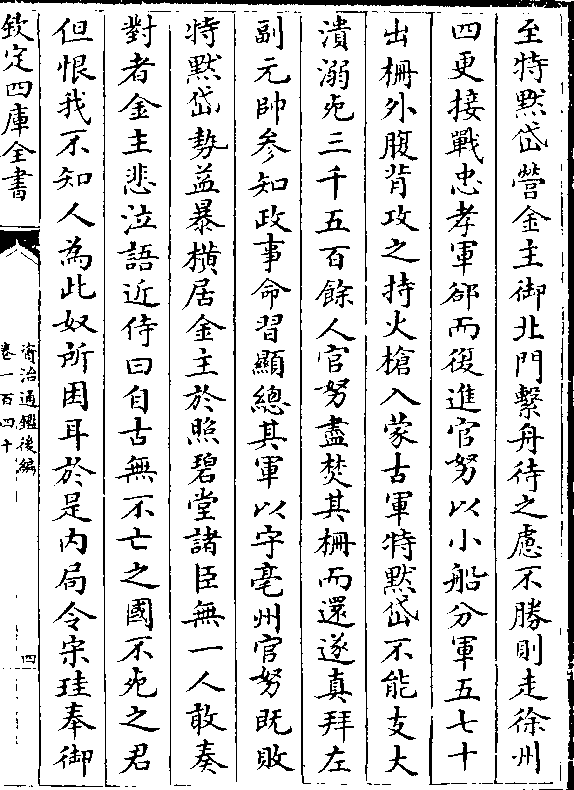 至特黙岱營金主御北門繫舟待之慮不勝則走徐州
四更接戰忠孝軍郤而復進官努以小船分軍五七十
出柵外腹背攻之持火槍入蒙古軍特黙岱不能支大
潰溺死三千五百餘人官努盡焚其柵而還遂真拜左
副元帥參知政事命習顯總其軍以守亳州官努既敗
特黙岱勢益暴橫居金主於照碧堂諸臣無一人敢奏
對者金主悲泣語近侍曰自古無不亡之國不死之君
但恨我不知人為此奴所困耳於是內局令宋珪奉御
欽定四庫全書
資治通鑑後編
卷一百四十
四